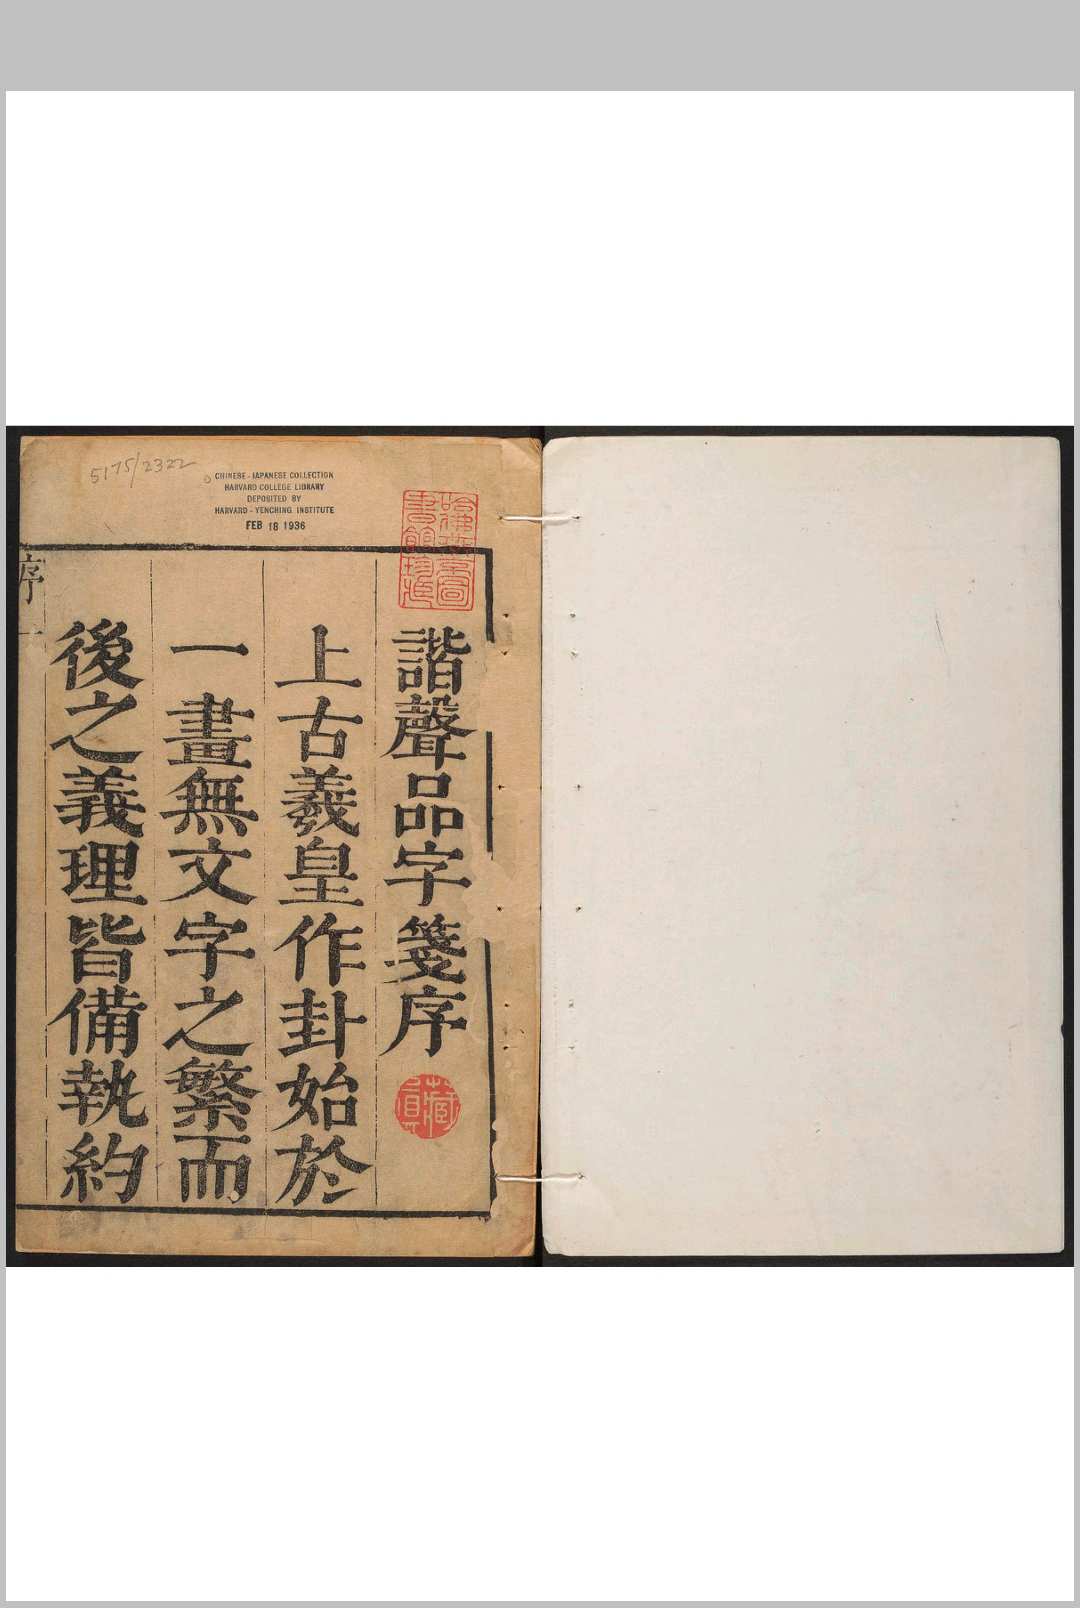 5175/2322
CHINESE-JAPANESE COLLECTION
HARVARD COLLEGE LIBRARY
DEPOSITED BY
HARVARD-YENCHING INSTITUTE
FEB 18 1936
哈佛燕京圖
書館珍藏
諧聲品字箋序
上古羲皇作卦始於
一畫無文字之繁而
後之義理皆備執約
序
一